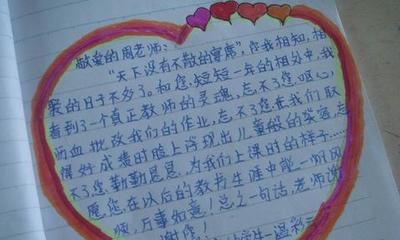 敬爱的周老师:
"天下没有不散的宴席",您我相知,相
聚的日子不多了。和您短短一年的相处中,我
看到了一个真正教师的灵魂,忘不了您呕心
沥血批改我们的作业,忘不了您在我们取
得好成绩时脸上浮现出儿童般的笑容,忘
不了您勤勤恳恳,为我们上课时的样子……
愿您,在以后的教书生涯中能一帆风
顺,万事如意!总之一句话,老师谢
谢您!
学生